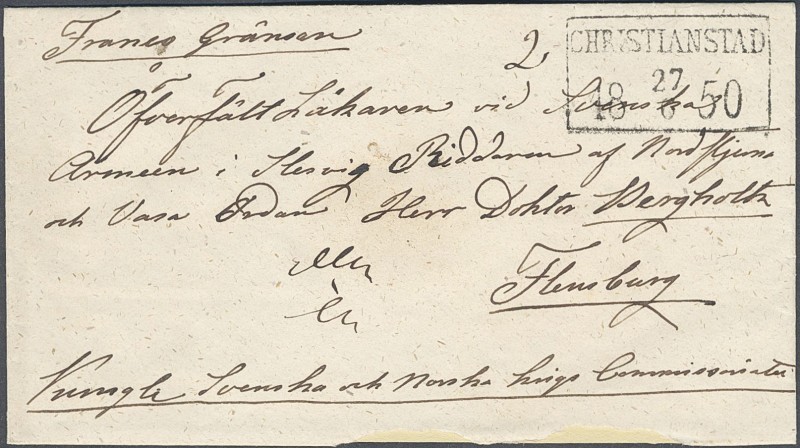 Franco Gränsen
2
CHRISTIANSTAD
27
18 6 50
Öfverfält Läkaren vid Svenska
Armeen i Slesvig Riddaren af Nordstjerne
och Vasa Orden Herr Doktor Bergholtz
Flensburg
Kungle Svenska och Norska krigs Commissariatet